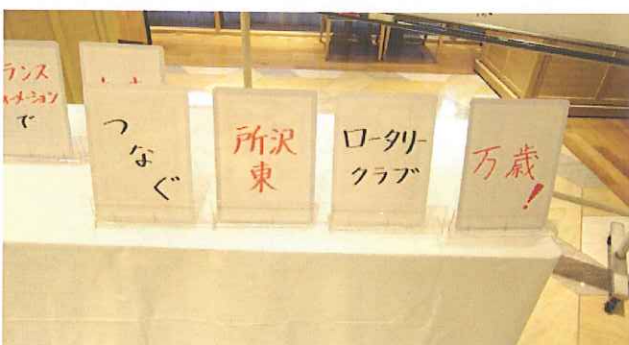 ランス
メーション
で
つ
な
ぐ
所沢
東
ロータリー
クラブ
万歳
!